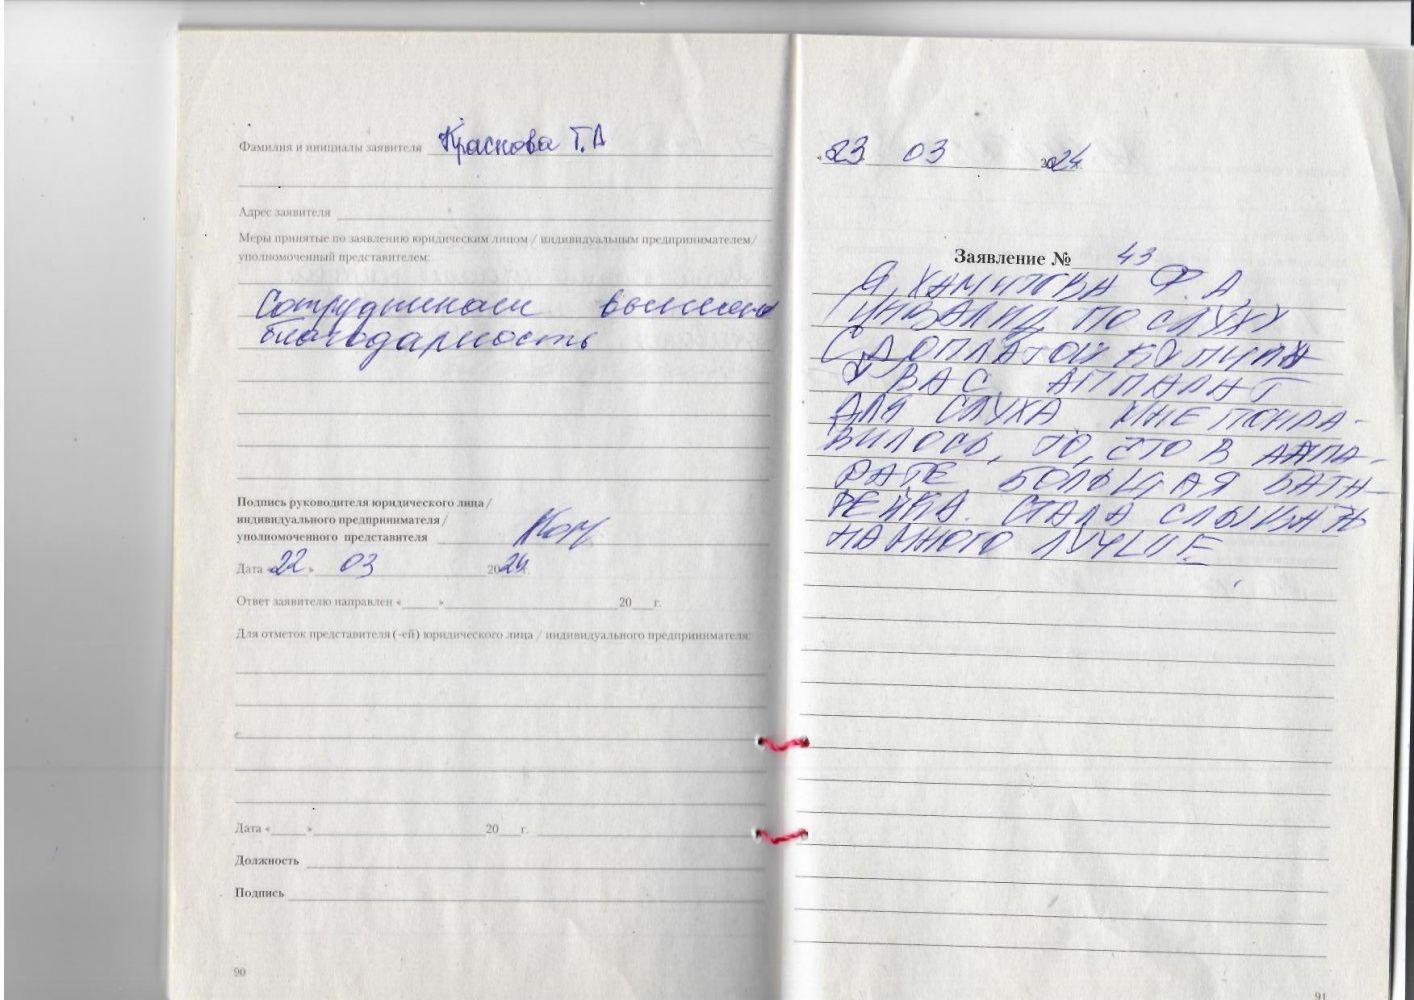 Фамилия и инициалы заявителя Краснова Т.А
Адрес заявителя
Меры принятые по заявлению юридическим лицом / индивидуальным предпринимателем/
уполномоченный представителем:
Сотрудникам вынесена
благодарность
Подпись руководителя юридического лица /
индивидуального предпринимателя /
уполномоченного представителя
Дата «22» 03 2024г.
Ответ заявителю направлен «____»____ 20__г.
Для отметок представителя (-ей) юридического лица / индивидуального предпринимателя:
Дата «____»____ 20__г.
Должность
Подпись
90
«23 03 2024.
Заявление № 43
Я, ХАМИТОВА Ф.А,
ИНВАЛИД ПО СЛУХУ
С ДОПЛАТОЙ КУПИЛА
У ВАС АППАРАТ
ДЛЯ СЛУХА. МНЕ ПОНРА-
ВИЛОСЬ, ТО, ЧТО В АППА-
РАТЕ БОЛЬШАЯ БАТА-
РЕЙКА. СТАЛА СЛЫШАТЬ
НАМНОГО ЛУЧШЕ.
91